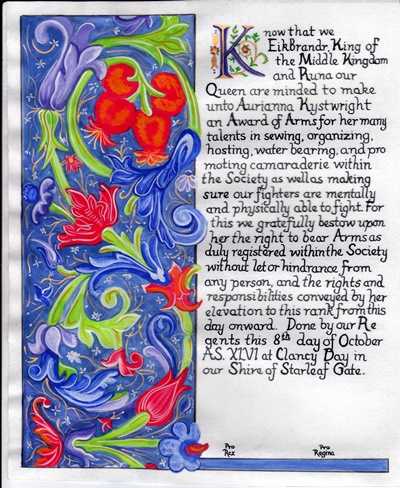 Know that we
EikBrandr, King of
the Middle Kingdom
and Runa our
Queen are minded to make
unto Aurianna Kystwright
an Award of Arms for her many
talents in sewing, organizing,
hosting, water bearing, and pro
moting camaraderie within
the Society as wellas making
sure our fighters are mentally
and physically able to fight. For
this we gratefully bestow upon
her the right to bear Arms as
duly registered within the Society
without let or hindrance from
any person, and the rights and
responsibilities conveyed by her
elevation to this rank from this
day onward. Done by our Re
gents this 8th day of October
A.S. XLVI at Clancy Day in
our Shire of Starleaf Gate.
Pro Pro
Rex Regina